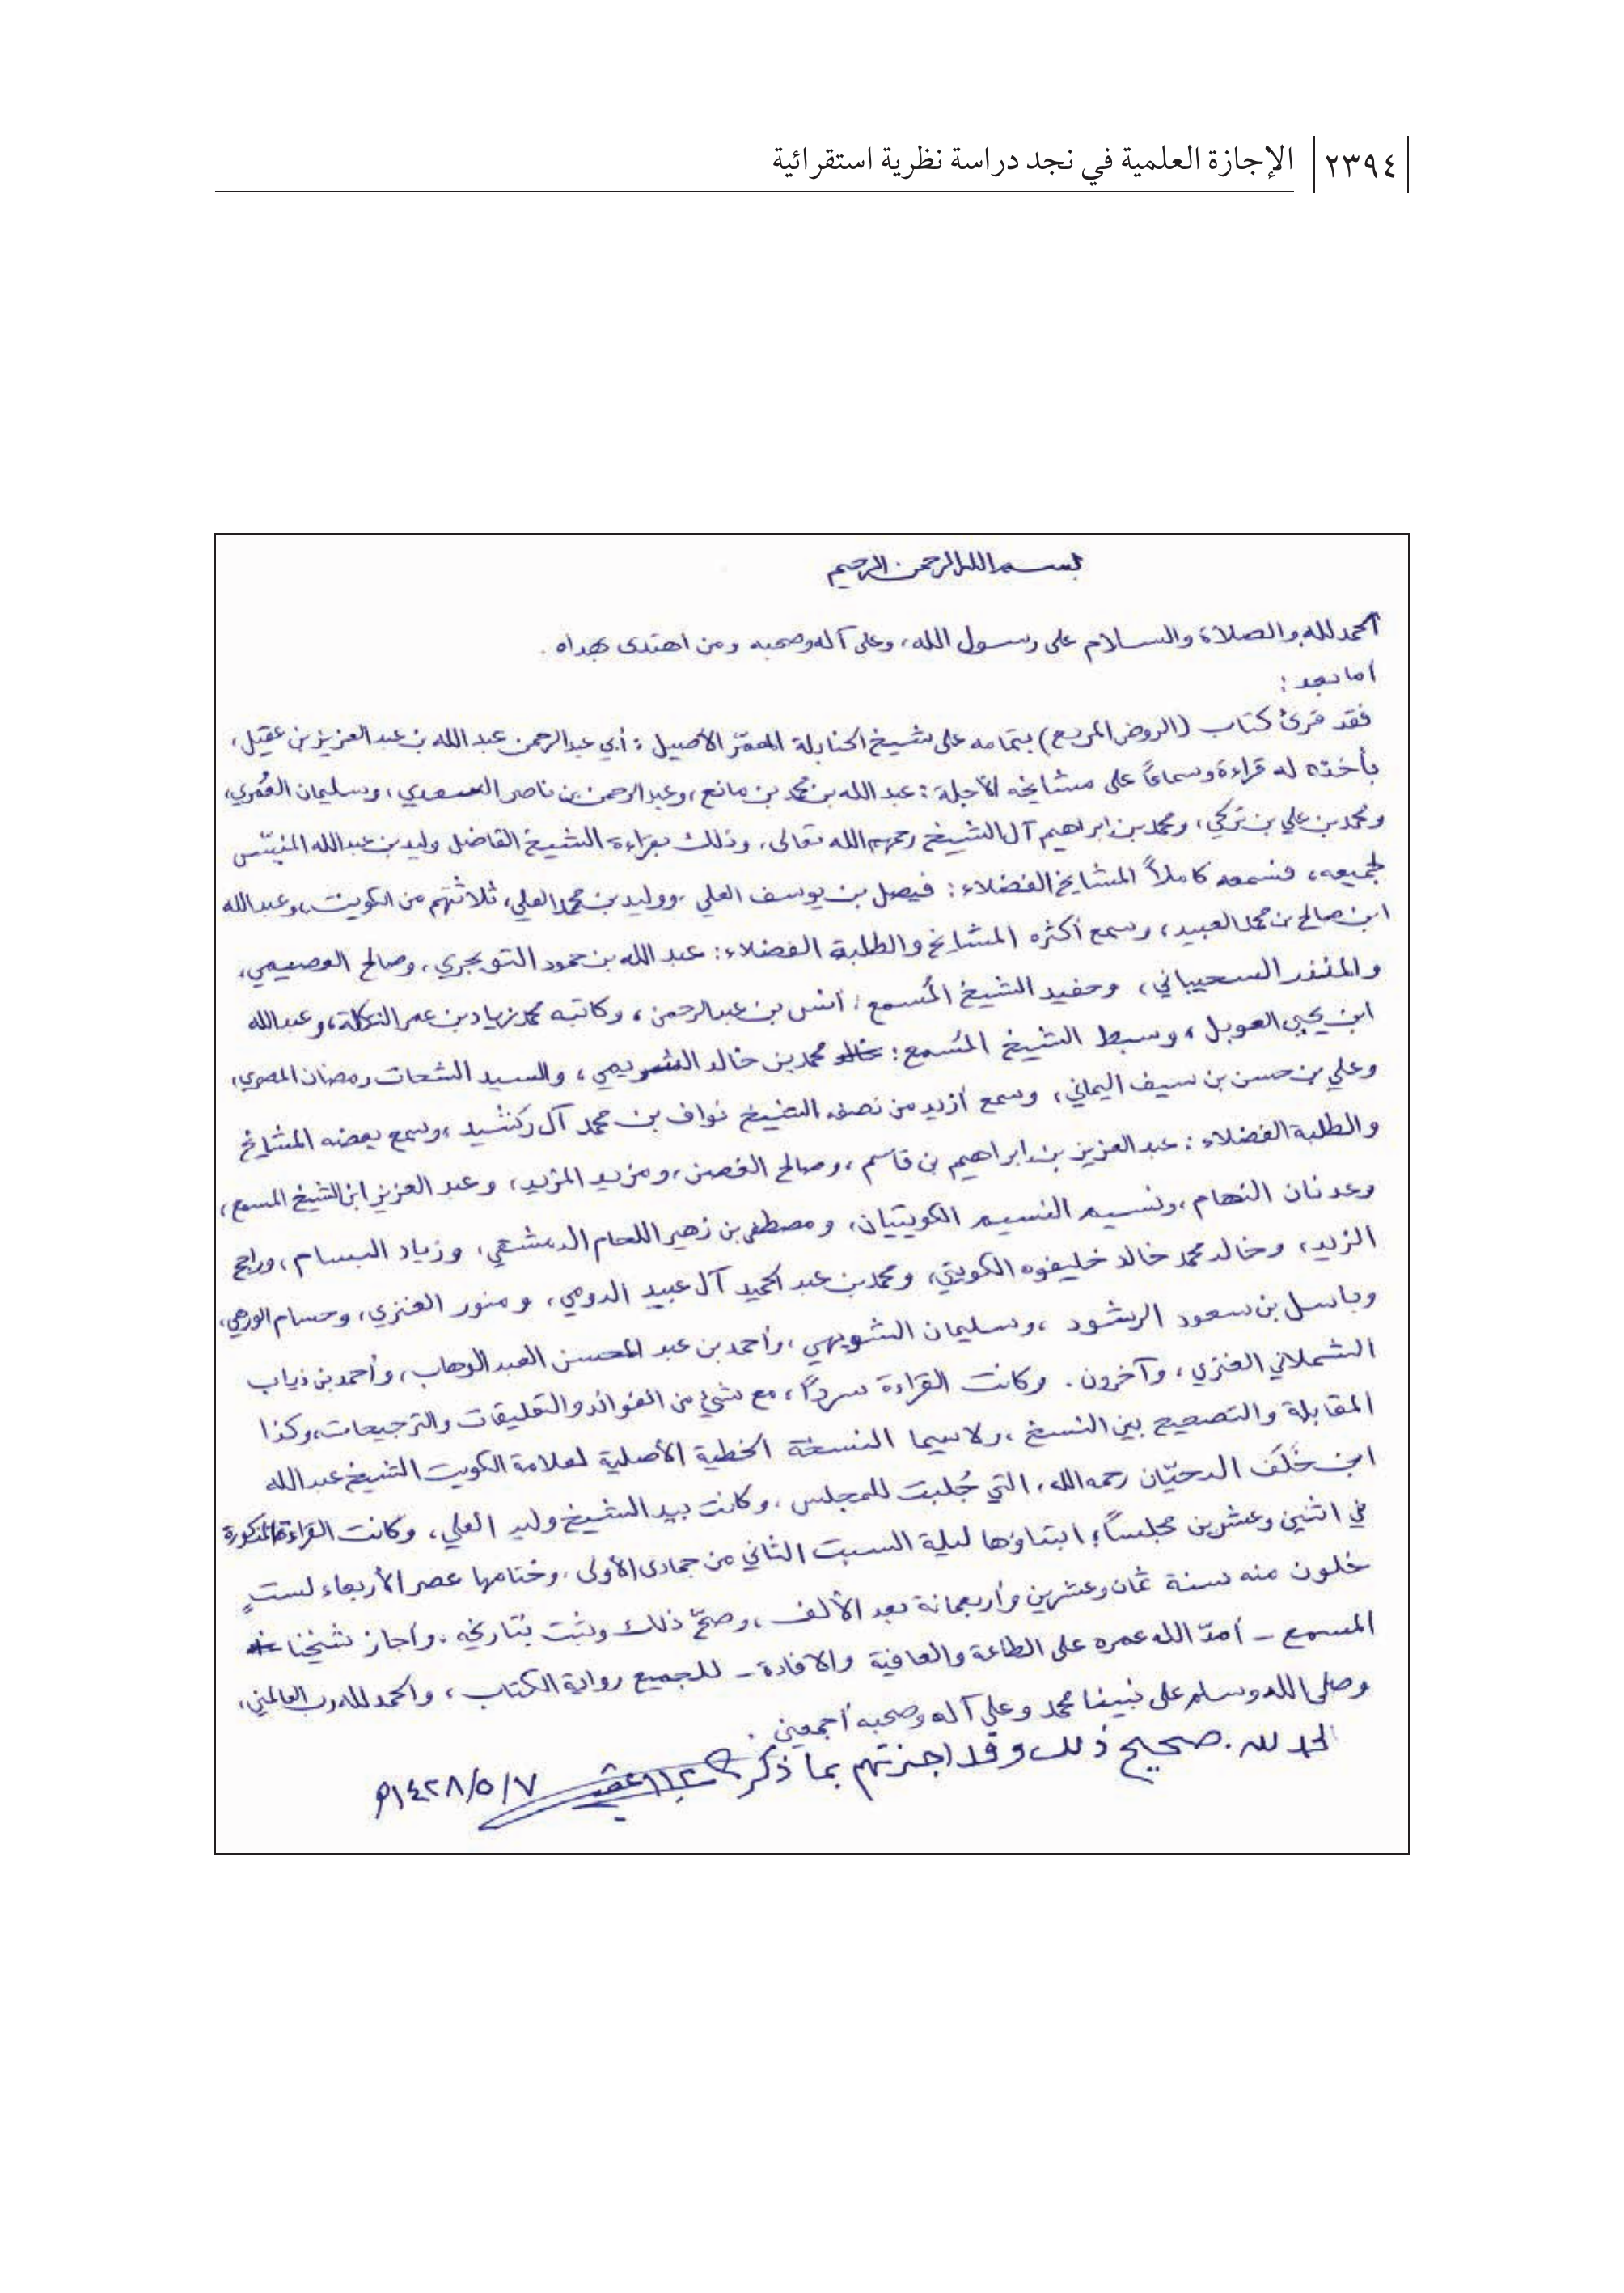 ٢٣٩٤ الإجازة العلمية في نجد دراسة نظرية استقرائية
بسم الله الرحمن الرحيم
الحمد لله والصلاة والسلام على رسول الله، وعلى آله وصحبه ومن اهتدى بهداه.
أما بعد:
فقد قرئ كتاب (الروض المربع) بتمامه على شيخ الحنابلة المعمّر الأصيل: أبي عبدالرحمن عبد الله بن عبد العزيز بن عقيل،
بأخذه له قراءة وسماعاً على مشايخه الأجلة: عبد الله بن محمد بن مانع، وعبدالرحمن بن ناصر السعدي، وسليمان العُمري،
ومحمد بن علي بن تركي، ومحمد بن ابراهيم آل الشيخ رحمهم الله تعالى، وذلك بقراءة الشيخ الفاضل وليد بن عبدالله المنيّس
لجميعه، فسمعه كاملاً المشايخ الفضلاء: فيصل بن يوسف العلي، ووليد بن محمد العلي، ثلاثتهم من الكويت، وعبد الله
ابن صالح بن محمد العبيد، وسمع أكثره المشايخ والطلبة الفضلاء: عبد الله بن حمود التويجري، وصالح العصيمي،
والمنذر السحيباني، وحفيد الشيخ المُسمع: أنس بن عبدالرحمن، وكاتبه محمد زياد بن عمر التكلة، وعبد الله
ابن يحيى العوبل، وسبط الشيخ المُسمع: محمد بن خالد الشريمي، والسيد الشحات رمضان المصري،
وعلي بن حسن بن سيف اليماني، وسمع أزيد من نصفه الشيخ نواف بن محمد آل رشيد، وسمع بعضه المشايخ
والطلبة الفضلاء: عبد العزيز بن ابراهيم بن قاسم، وصالح الغصن، ومزيد المزيد، وعبد العزيز ابن الشيخ المسمع،
وعدنان النهام، ونسيم النسيم الكويتيان، ومصطفى بن زهير اللحام الدمشقي، وزياد البسام، وراجح
الزيد، وخالد محمد خالد خليفوه الكويتي، ومحمد بن عبد الحميد آل عبيد الدومي، ومنور العنزي، وحسام
وباسل بن سعود الرشود، وسليمان الشويهي، وأحمد بن عبد المحسن العبد الوهاب، وأحمد بن ذياب
الشملاني العنزي، وآخرون. وكانت القراءة سرداً، مع شيئ من الفوائد والتعليقات والترجيحات، وكذا
المقابلة والتصحيح بين النسخ، ولاسيما النسخة الخطية الأصلية لعلامة الكويت الشيخ عبد الله
ابن خَلَف الدحيّان رحمه الله، التي جُلبت للمجلس، وكانت بيد الشيخ وليد العلي، وكانت القراءة المذكورة
في اثنين وعشرين مجلساً، ابتداؤها ليلة السبت الثاني من جمادى الأولى، وختامها عصر الأربعاء لستٍ
خلون منه سنة ثمان وعشرين وأربعمائة بعد الألف، وصحّ ذلك وثبت بتاريخه، وأجاز شيخنا
المسمع - أمدّ الله عمره على الطاعة والعافية والافادة - للجميع رواية الكتاب، والحمد لله رب العالمين،
وصلى الله وسلم على نبينا محمد وعلى آله وصحبه أجمعين.
الحمد لله. صحيح ذلك وقد اجزتهم بما ذكر ١٤٢٨/٥/٧هـ